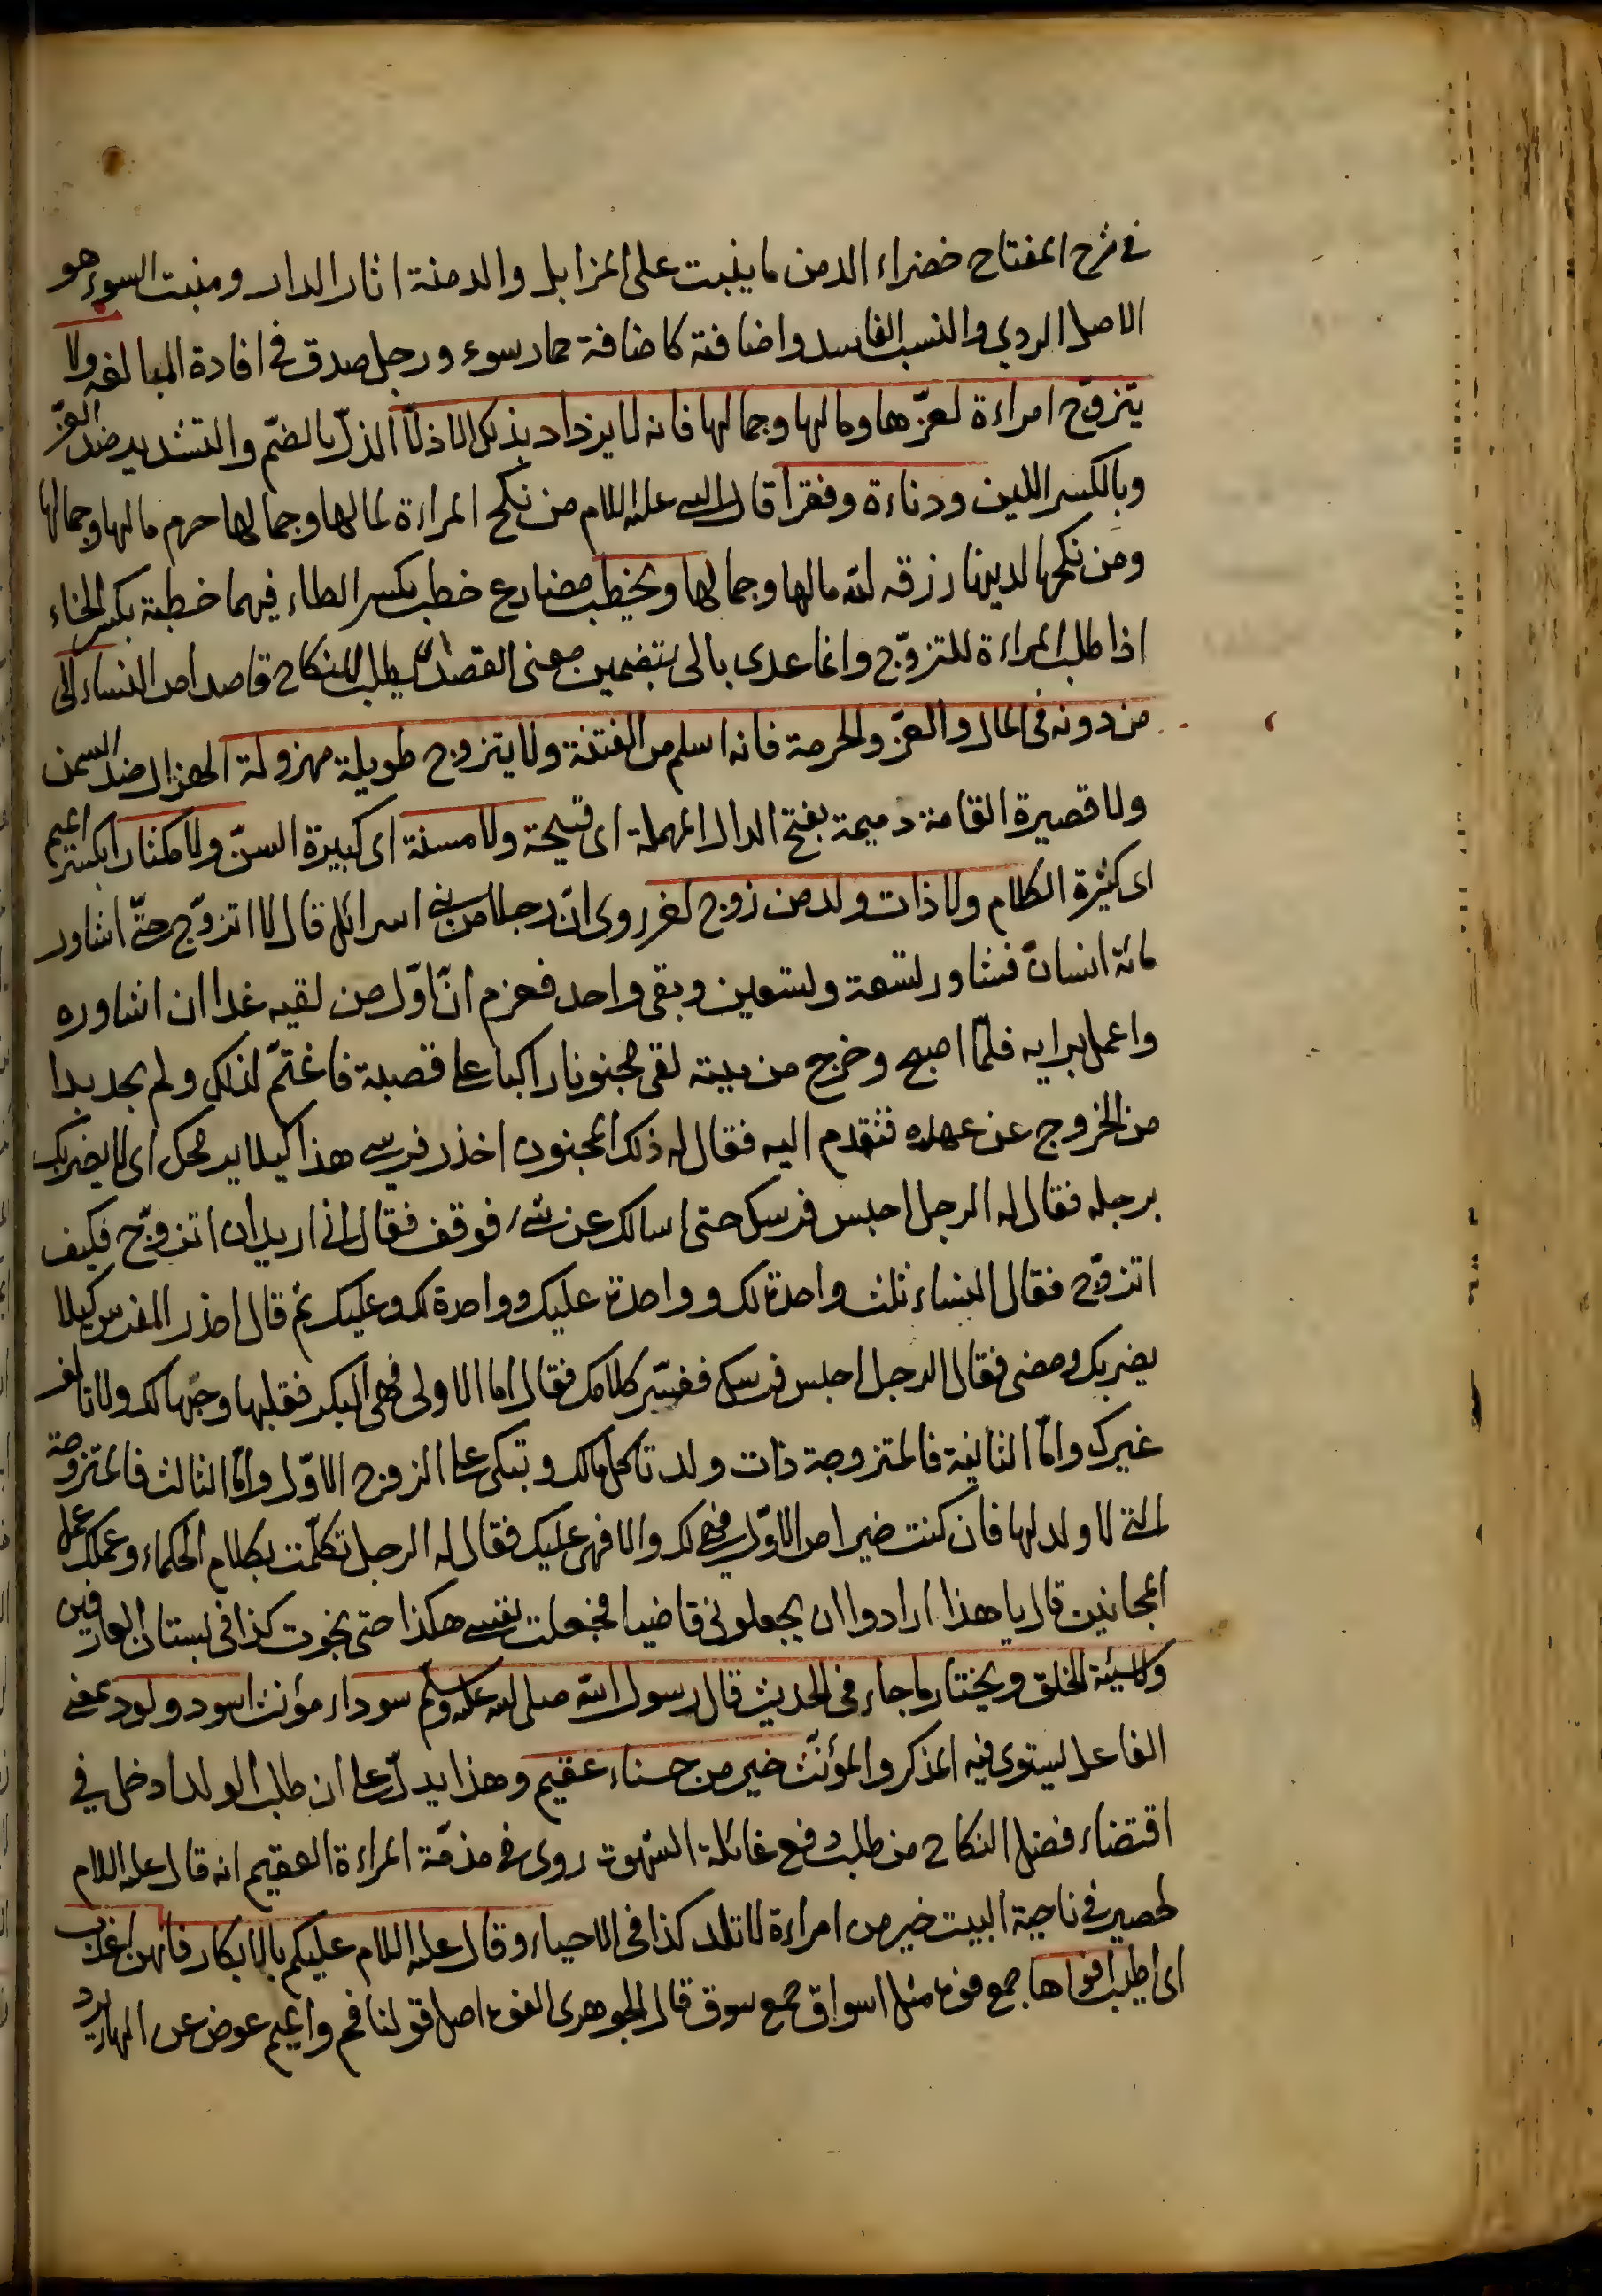 في شرح المفتاح خضراء الدمن ما ينبت على المزابل والدمنة اثار الدار ومنبت السوء هو
الاصل الردي والنسب الفاسد واضافته كاضافة حمار سوء ورجل صدق في افادة المبالغة ولا
يتزوّج امراءة لعزّها ومالها وجمالها فانه لا يزداد بذلك الا ذلّا الذلّ بالضمّ والتشديد ضد العزّ
وبالكسر اللين ودناءة وفقرا قال النبي عليه السلام من نكح المراءة لمالها وجمالها حرم مالها وجمالها
ومن نكحها لدينها رزقه الله مالها وجمالها ويخطب مضارع خطب بكسر الطاء فيهما خطبة بكسر الخاء
اذا طلب المراءة للتزوّج وانما عدى بالى بتضمين معنى القصد اى يطلب النكاح قاصدا من النساء الى
من دونه في المال والعزّ والحرمة فانه اسلم من الفتنة ولا يتزوج طويلة مهزولة الهزال ضد السمن
ولا قصيرة القامة دميمة بفتح الدال المهملة اى قبيحة ولا مسنة اى كبيرة السنّ ولا مكثارا بكسر الميم
اى كثيرة الكلام ولا ذات ولد من زوج اخر روى انّ رجلا من بني اسرائل قال لا اتزوّج حتّى اشاور
مائة انسان فشاور تسعة وتسعين وبقى واحد فعزم انّ اوّل من لقيه غدا ان اشاوره
واعمل برايه فلمّا اصبح وخرج من بيته لقى مجنونا راكبا على قصبة فاغتمّ لذلك ولم يجد بدا
من الخروج عن عهده فتقدم اليه فقال له ذلك المجنون احذر فرسي هذا كيلا يرمحك اى لا يضربك
برجله فقال له الرجل احبس فرسك حتى اسالك عن شيء فوقف فقال اني اريد ان اتزوّج فكيف
اتزوّج فقال النساء ثلث واحدة لك وواحدة عليك وواحدة لك وعليك ثم قال احذر الفرس كيلا
يضربك ومضى فقال الرجل احبس فرسك ففسّر كلامك فقال اما الاولى فهى البكر فقلبها وحبّها لك ولا تالف
غيرك وامّا الثانية فالمتزوجة ذات ولد تاكل مالك وتبكى على الزوج الاوّل وامّا الثالث فالمتزوجة
التي لا ولد لها فان كنت خيرا من الاوّل فهي لك والا فهى عليك فقال له الرجل تكلّمت بكلام الحكماء وعملك عمل
المجانين قال يا هذا ارادوا ان يجعلوني قاضيا فجعلت نفسى هكذا حتى نجوت كذا في بستان العارفين
ولا سيّئة الخلق ويختار ما جاء في الحديث قال رسول الله صلى الله عليه وسلّم سوداء مؤنث اسود ولود بمعنى
الفاعل يستوى فيه المذكر والمؤنّث خير من حسناء عقيم وهذا يدلّ على ان طلب الولد ادخل في
اقتضاء فضل النكاح من طلب دفع غائلة الشهوة روى في مذمّة المراءة العقيم انه قال عليه السلام
لحصير في ناحية البيت خير من امراءة لا تلد كذا في الاحياء وقال عليه السلام عليكم بالابكار فانهن اعذب
اى اطيب افواها جمع فوه مثل اسواق جمع سوق قال الجوهرى الفوه اصل قولنا فم والميم عوض عن الهاء